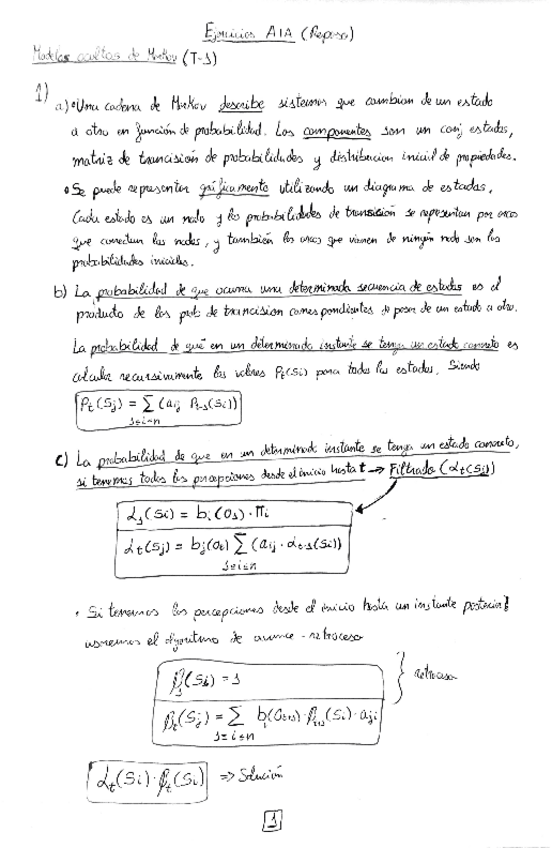 Ejercicios AIA (Repaso)
Modelos ocultos de Markov (T-1)
1)
a) • Una cadena de Markov describe sistemas que cambian de un estado
a otro en función de probabilidad. Los componentes son un conj estados,
matriz de trancisión de probabilidades y distribucion inicial de propiedades.
• Se puede representar gráficamente utilizando un diagrama de estados,
Cada estado es un nodo y las probabilidades de transición se representan por arcos
que conectan los nodos, y también los arcos que vienen de ningún nodo son las
probabilidades iniciales.
b) La probabilidad de que ocurra una determinada secuencia de estados es el
producto de las prob de trancision correspondientes de pasar de un estado a otro.
La probabilidad de que en un determinado instante se tenga un estado concreto es
calcular recursivamente los valores Pt(Si) para todos los estados. Siendo
Pt(Sj) = Σ (aij Pt-1(Si))
1≤i≤n
c) La probabilidad de que en un determinado instante se tenga un estado concreto,
si tenemos todas las percepciones desde el inicio hasta t → Filtrado (αt(Si))
α1(Si) = bi(O1) · πi
αt(Sj) = bj(Ot) Σ (aij · αt-1(Si))
1≤i≤n
• Si tenemos las percepciones desde el inicio hasta un instante posterior
usaremos el algoritmo de avance - retroceso
(Si) = 1
βt(Sj) = Σ bi(Ot+1) · βt+1(Si) · aji
1≤i≤n
retroceso
αt(Si) · βt(Si) => Solución
1